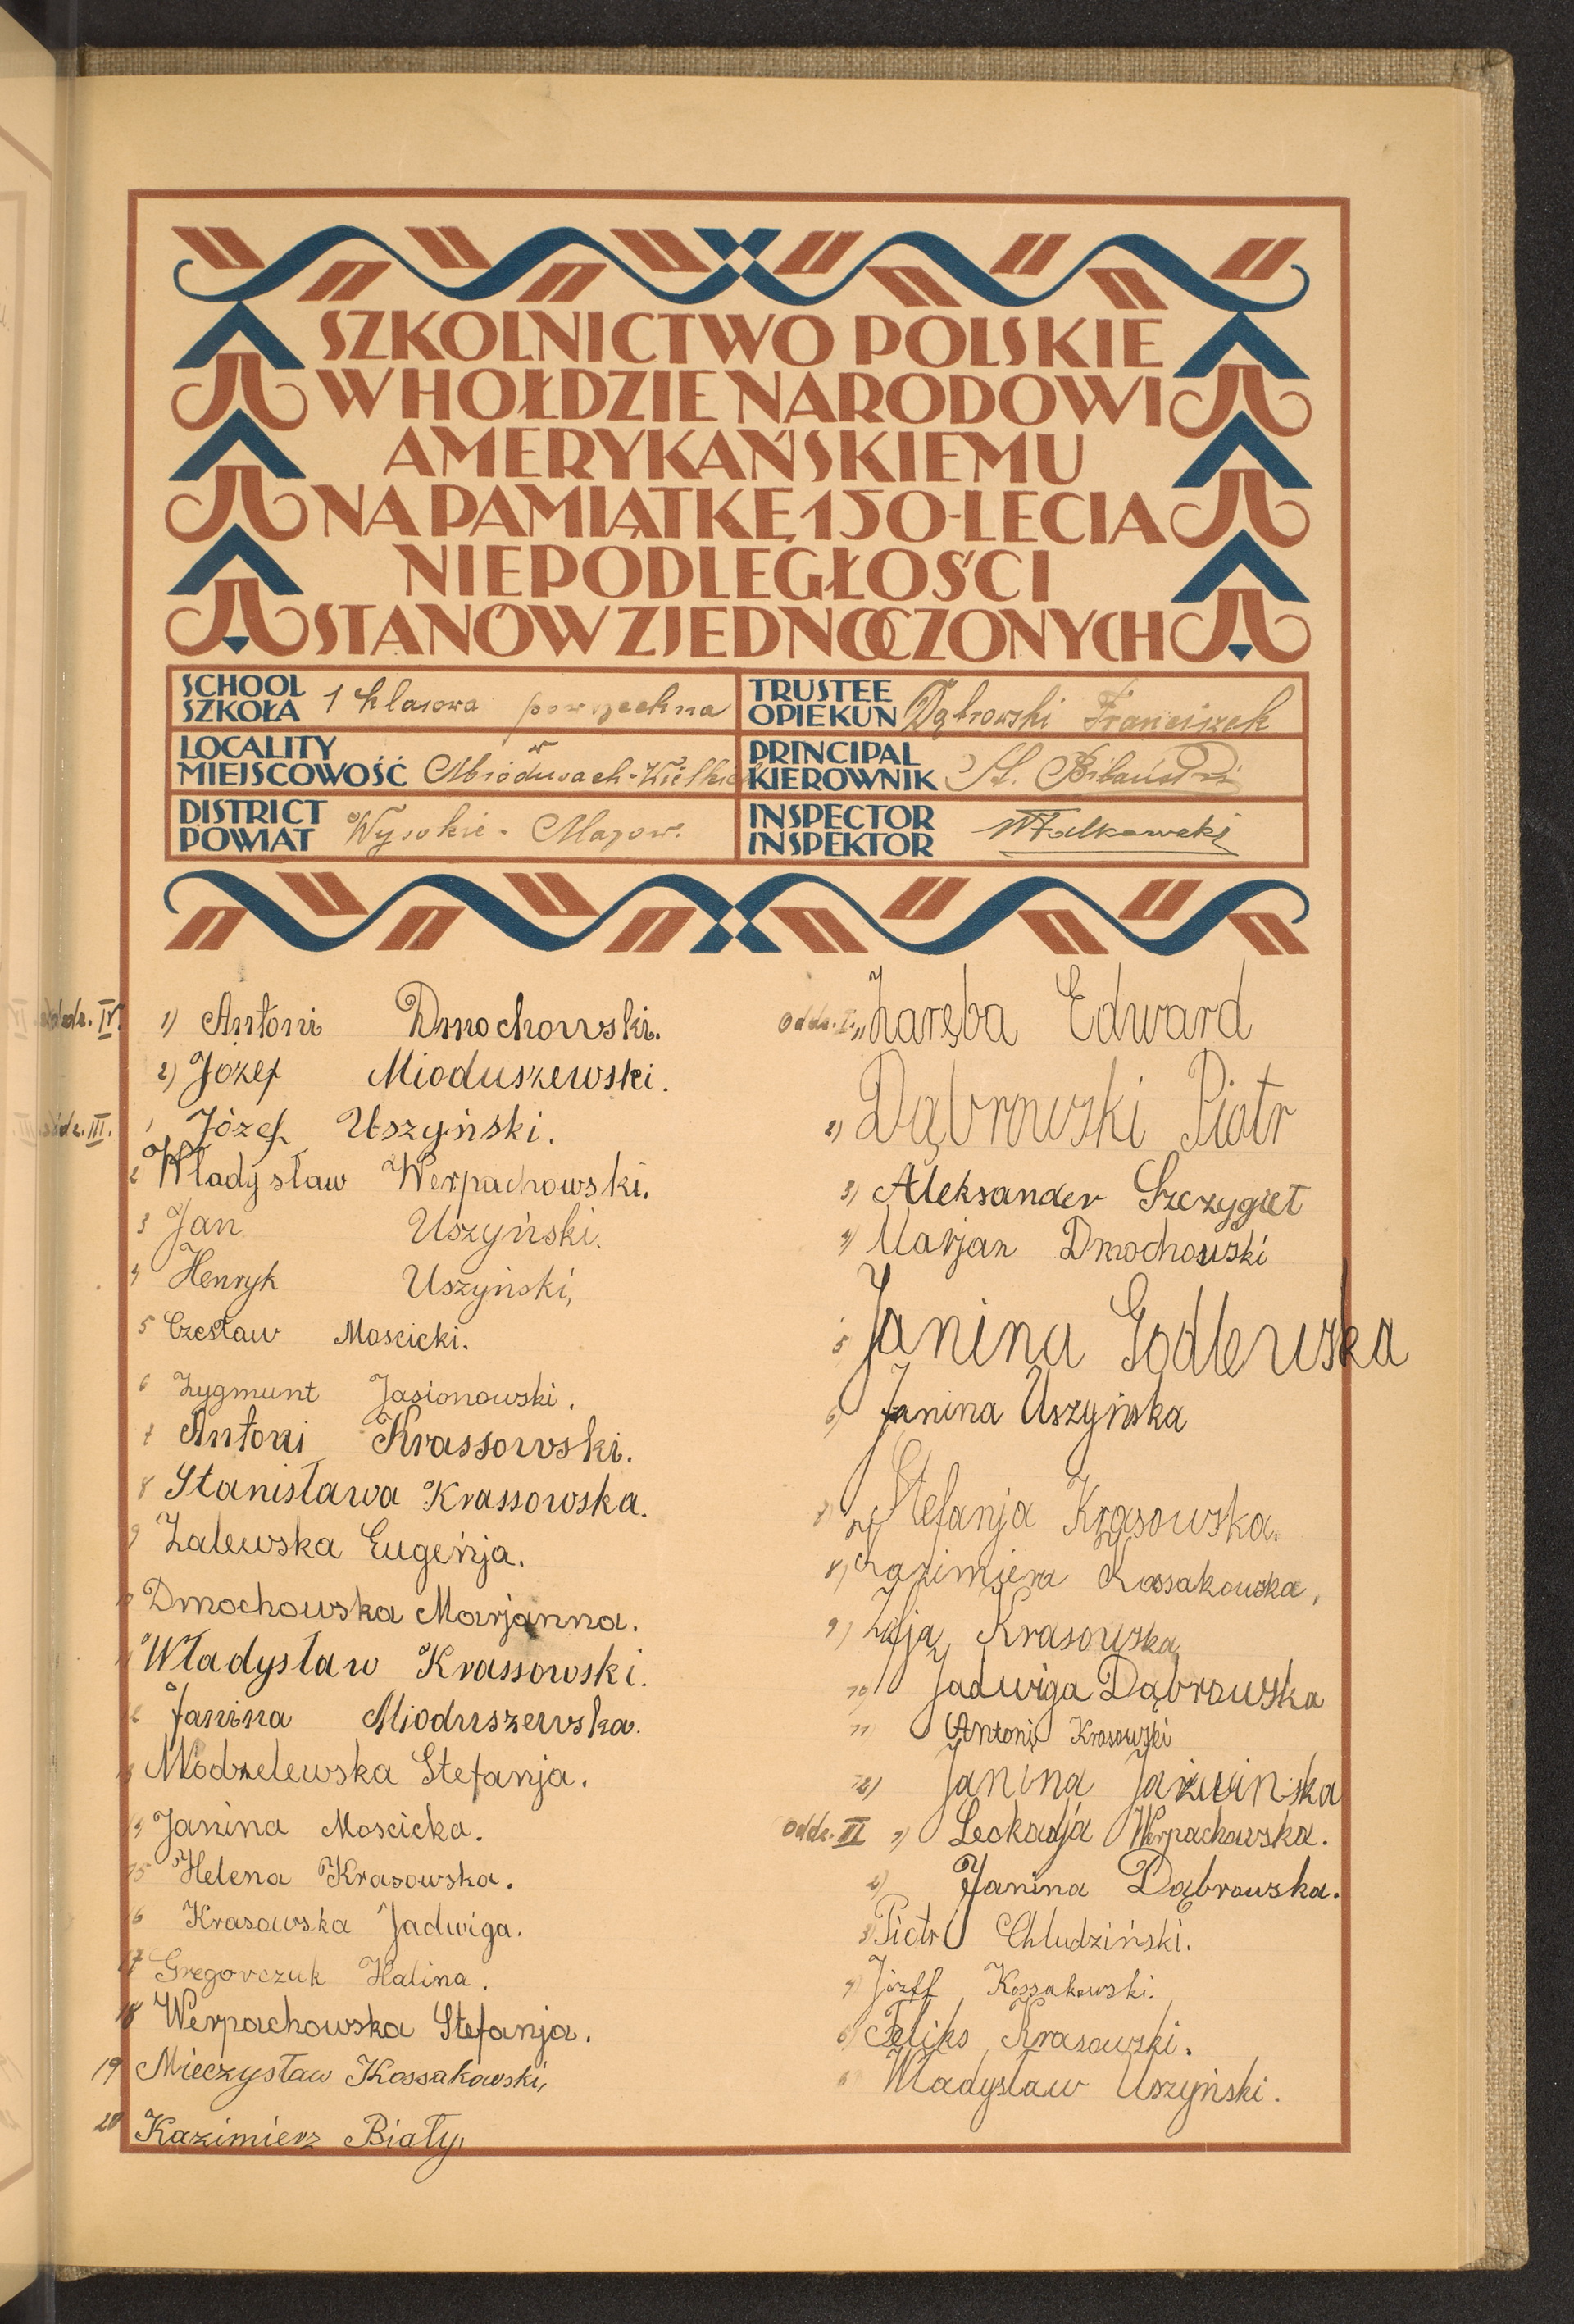 SZKOLNICTWO POLSKIE
W HOŁDZIE NARODOWI
AMERYKAŃSKIEMU
NA PAMIĄTKĘ 150-LECIA
NIEPODLEGŁOŚCI
STANÓW ZJEDNOCZONYCH
SCHOOL
SZKOŁA 1 klasowa powszechna
LOCALITY
MIEJSCOWOŚĆ w Miodusach-Wielkich
DISTRICT
POWIAT Wysokie-Mazow.
TRUSTEE
OPIEKUN Dąbrowski Franciszek
PRINCIPAL
KIEROWNIK St.
INSPECTOR
INSPEKTOR
oddz. IV. 1) Antoni Dmochowski.
2) Józef Mioduszewski.
oddz. III. 1 Józef Uszyński.
2 Władysław Werpachowski.
3 Jan Uszyński.
4 Henryk Uszyński,
5 Czesław Mościcki.
6 Zygmunt Jasionowski.
7 Antoni Krassowski.
8 Stanisława Krassowska.
9 Zalewska Eugenja.
10 Dmochowska Marjanna.
11 Władysław Krassowski.
12 Janina Mioduszewska.
13 Modzelewska Stefanja.
14 Janina Moscicka.
15 Helena Krasowska.
16 Krasowska Jadwiga.
17 Gregorczuk Halina.
18 Werpachowska Stefanja.
19 Mieczysław Kossakowski,
20 Kazimierz Biały,
oddz. I. 1) Zaręba Edward
2) Dąbrowski Piotr
3) Aleksander Szczygieł
4) Marjan Dmochowski
5 Janina Godlewska
6) Janina Uszyńska
7) Stefanja Krasowska.
8) Kazimiera Kossakowska,
9) Zofja Krasowska
10) Jadwiga Dąbrowska
11) Antoni Krasowski
12) Janina Jaźwińska
oddz. II 1) Leokadja Werpachowska.
2) Janina Dąbrowska.
3) Piotr Chludziński.
4) Józff Kossakowski.
5) Feliks Krasowski.
6) Władysław Uszyński.